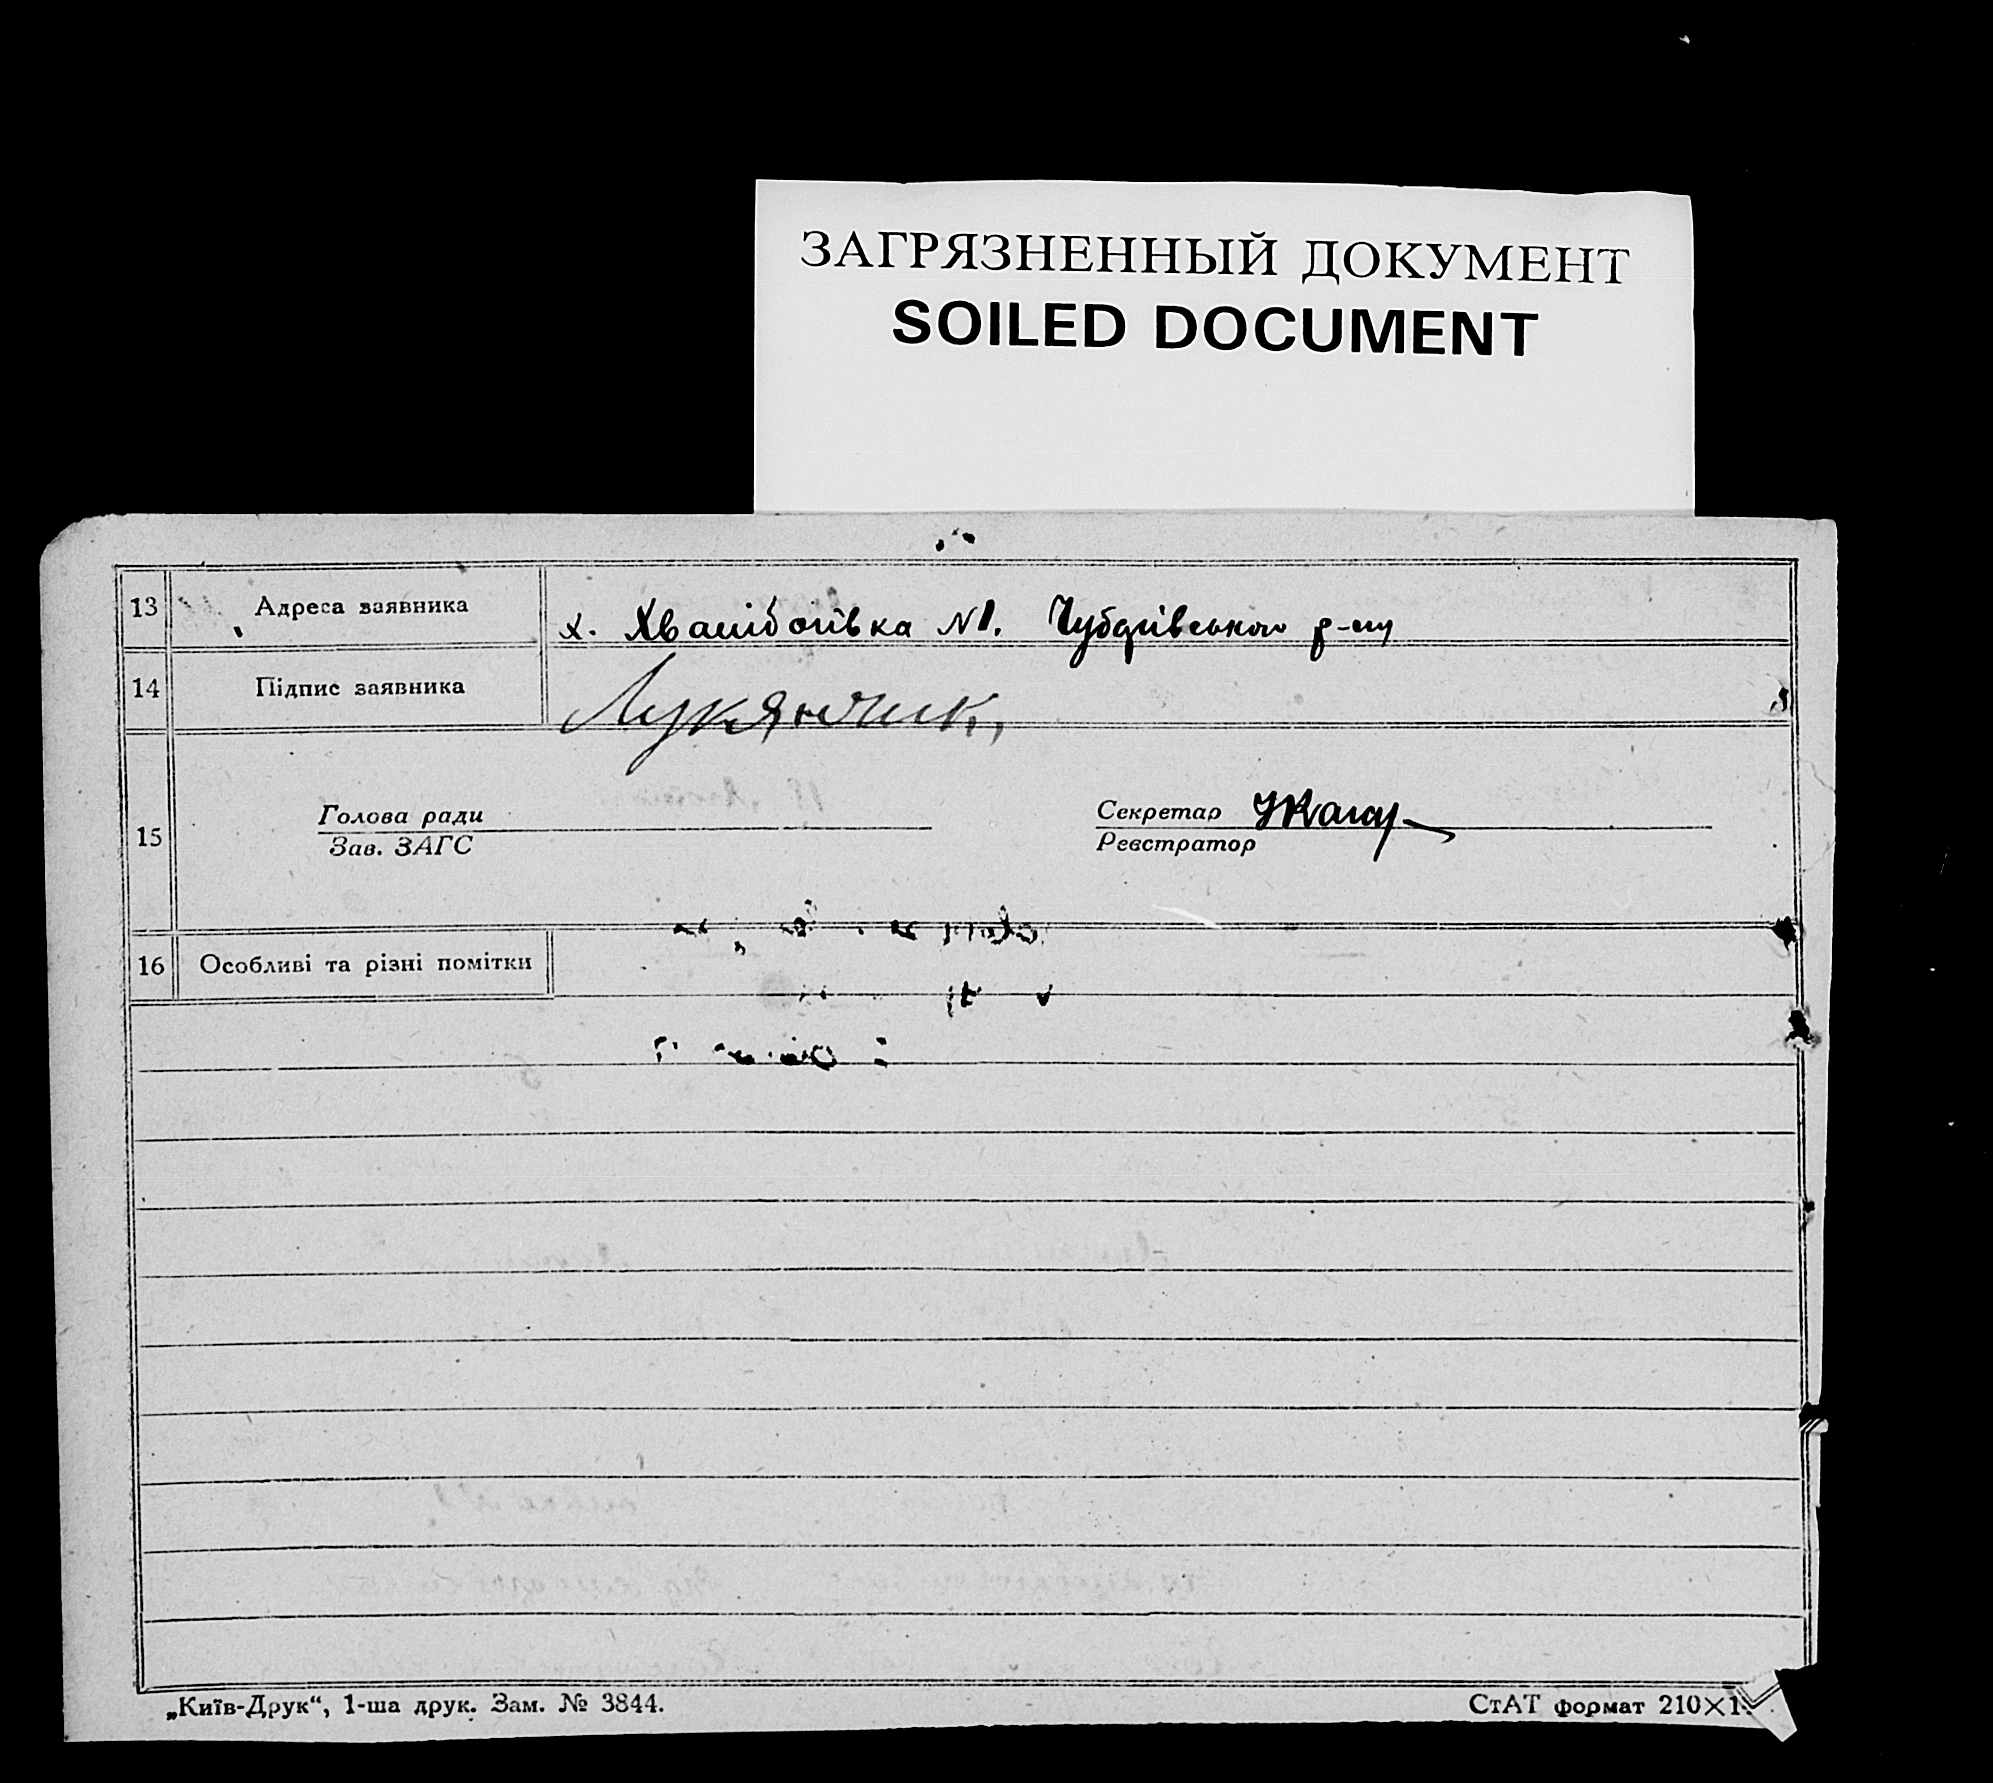 ЗАГРЯЗНЕННЫЙ ДОКУМЕНТ
SOILED DOCUMENT
13 Адреса заявника х. №1. р-ну
14 Підпис заявника Лукянчик,
15 Голова ради Секретар
Зав. ЗАГС Реєстратор
16 Особливі та різні помітки
„Київ-Друк“, 1-ша друк. Зам. № 3844. СтАТ формат 210×1